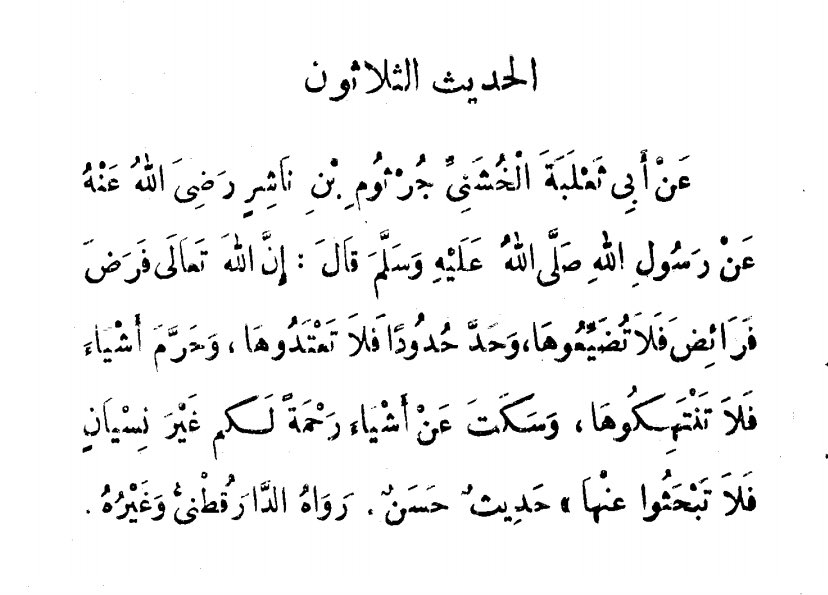 الحديث الثلاثون
عَنْ أَبِي ثَعْلَبَةَ الْخُشَنِيِّ جُرْثُومِ بْنِ نَاشِرٍ رَضِيَ اللهُ عَنْهُ
عَنْ رَسُولِ اللهِ صَلَّى اللهُ عَلَيْهِ وَسَلَّمَ قَالَ : إِنَّ اللهَ تَعَالَى فَرَضَ
فَرَائِضَ فَلَا تُضَيِّعُوهَا، وَحَدَّ حُدُودًا فَلَا تَعْتَدُوهَا ، وَحَرَّمَ أَشْيَاءَ
فَلَا تَنْتَهِكُوهَا ، وَسَكَتَ عَنْ أَشْيَاءَ رَحْمَةً لَكم غَيْرَ نِسْيَانٍ
فَلَا تَبْحَثُوا عنْهَا » حَدِيثٌ حَسَنٌ . رَوَاهُ الدَّارَقُطْنيُّ وَغَيْرُهُ .